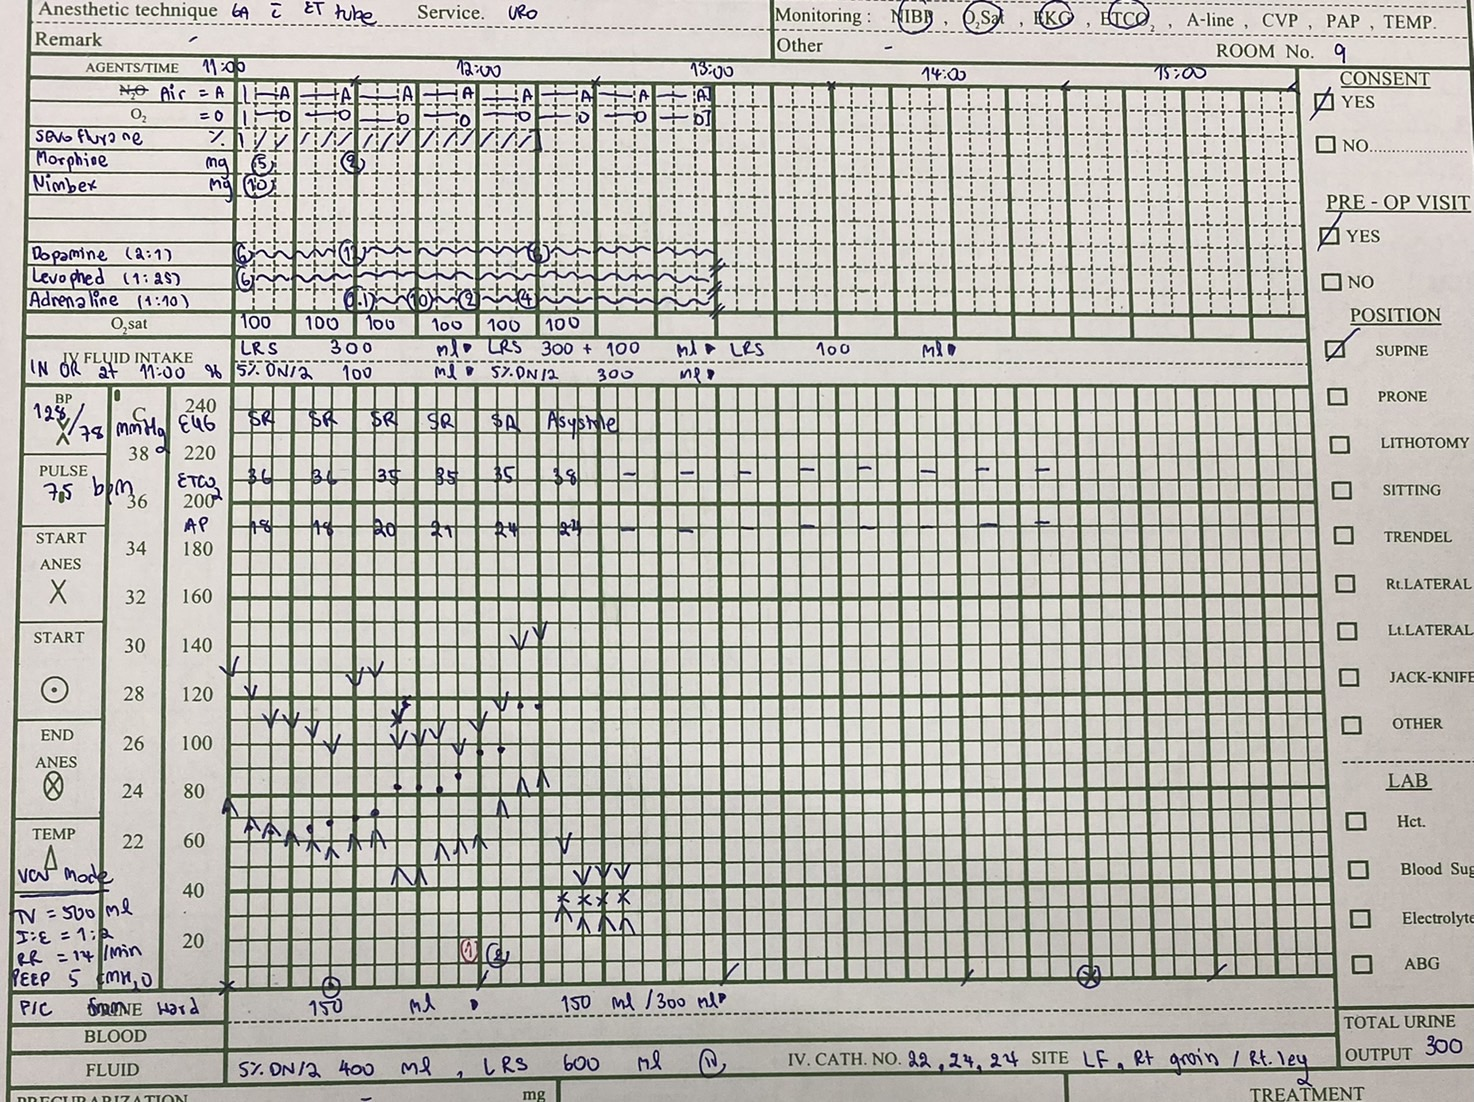 Anesthetic technique GA c̄ ET tube Service. URO
Monitoring : NIBP , O2Sat , EKG , ETCO2 , A-line , CVP , PAP , TEMP.
Remark -
Other -
ROOM No. 9
AGENTS/TIME 11:00 12:00 13:00 14:00 15:00
N2O Air = A A A A A A A A A
O2 = O O O O O O O O O
Sevoflurane %
Morphine mg 5 2
Nimbex mg 10
Dopamine (2:1) 6 12 8
Levophed (1:25) 6
Adrenaline (1:10) 10 2 4
O2sat 100 100 100 100 100 100
IV FLUID INTAKE
IN OR at 11:00
LRS 300 ml LRS 300 + 100 ml LRS 100 ml
5% DN/2 100 ml 5% DN/2 300 ml
BP
128/78 mmHg
PULSE
75 bpm
START
ANES
X
START
END
ANES
TEMP
C
38
36
34
32
30
28
26
24
22
240
220
200
180
160
140
120
100
80
60
40
20
EKG SR SR SR SR SR Asystole
ETCO2 36 36 35 35 35 38 - - - - - - - -
AP 18 18 20 21 24 24 - - - - - - - -
VCV mode
TV = 500 ml
I:E = 1:2
RR = 14 /min
PEEP 5 cmH2O
1 2
P/C ward
URINE 150 ml 150 ml /300 ml
BLOOD
FLUID 5% DN/2 400 ml , LRS 600 ml IV
IV. CATH. NO. 22, 24, 24 SITE LF, Rt groin / Rt. leg
CONSENT
YES
NO
PRE - OP VISIT
YES
NO
POSITION
SUPINE
PRONE
LITHOTOMY
SITTING
TRENDEL
Rt.LATERAL
Lt.LATERAL
JACK-KNIFE
OTHER
LAB
Hct.
Blood Sug
Electrolyte
ABG
TOTAL URINE
OUTPUT 300
PRECURARIZATION - mg
TREATMENT